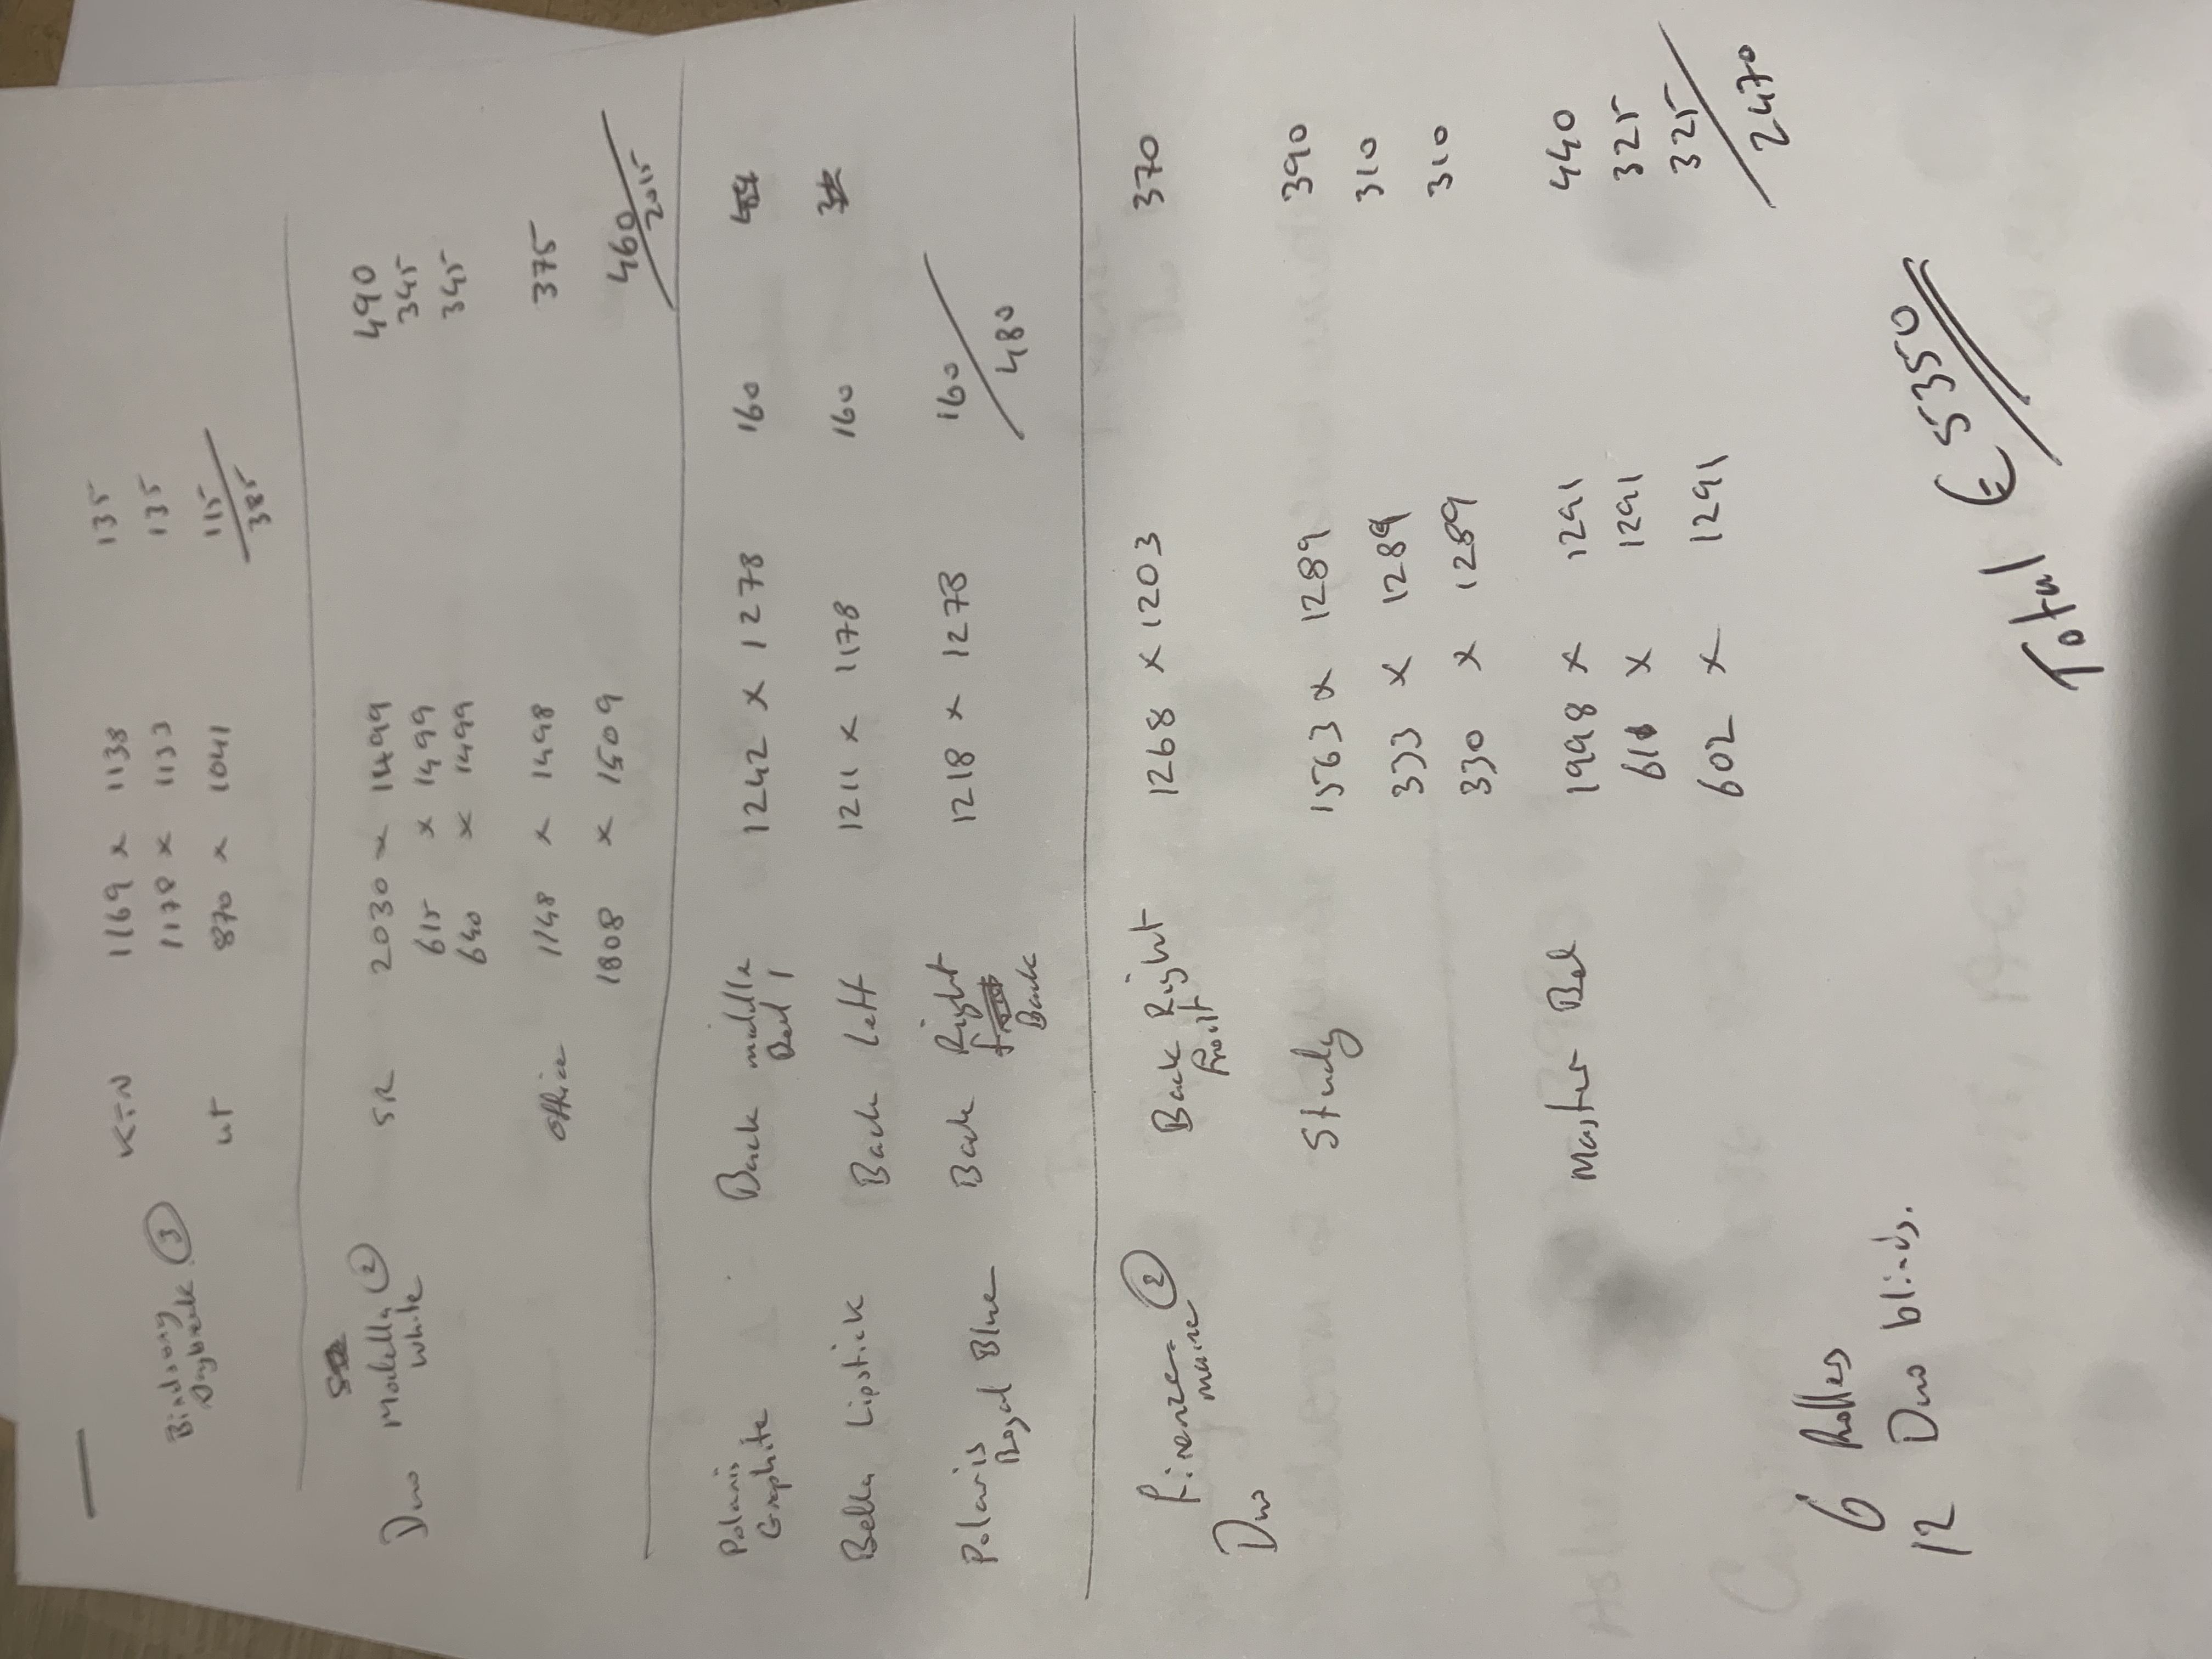 KTN 1169 x 1138 135
Birdsong 3 1178 x 1133 135
Daybreak
UT 870 x 1041 115
385
Duo Modella 2 SR 2030 x 1499 490
White 615 x 1499 345
640 x 1499 345
office 1148 x 1498 375
1808 x 1509 460
2015
Polaris Back middle 1242 x 1278 160
Graphite Bed 1
Bella Lipstick Back Left 1211 x 1178 160
Polaris Back Right 1218 x 1278 160
Royal Blue Back
480
Firenze 2 Back Right 1268 x 1203 370
Duo Marine Front
Study 1563 x 1289 390
333 x 1289 310
330 x 1289 310
Master Bed 1998 x 1291 440
61 x 1291 325
602 x 1291 325
2470
6 Rolles
12 Duo blinds.
Total € 5350